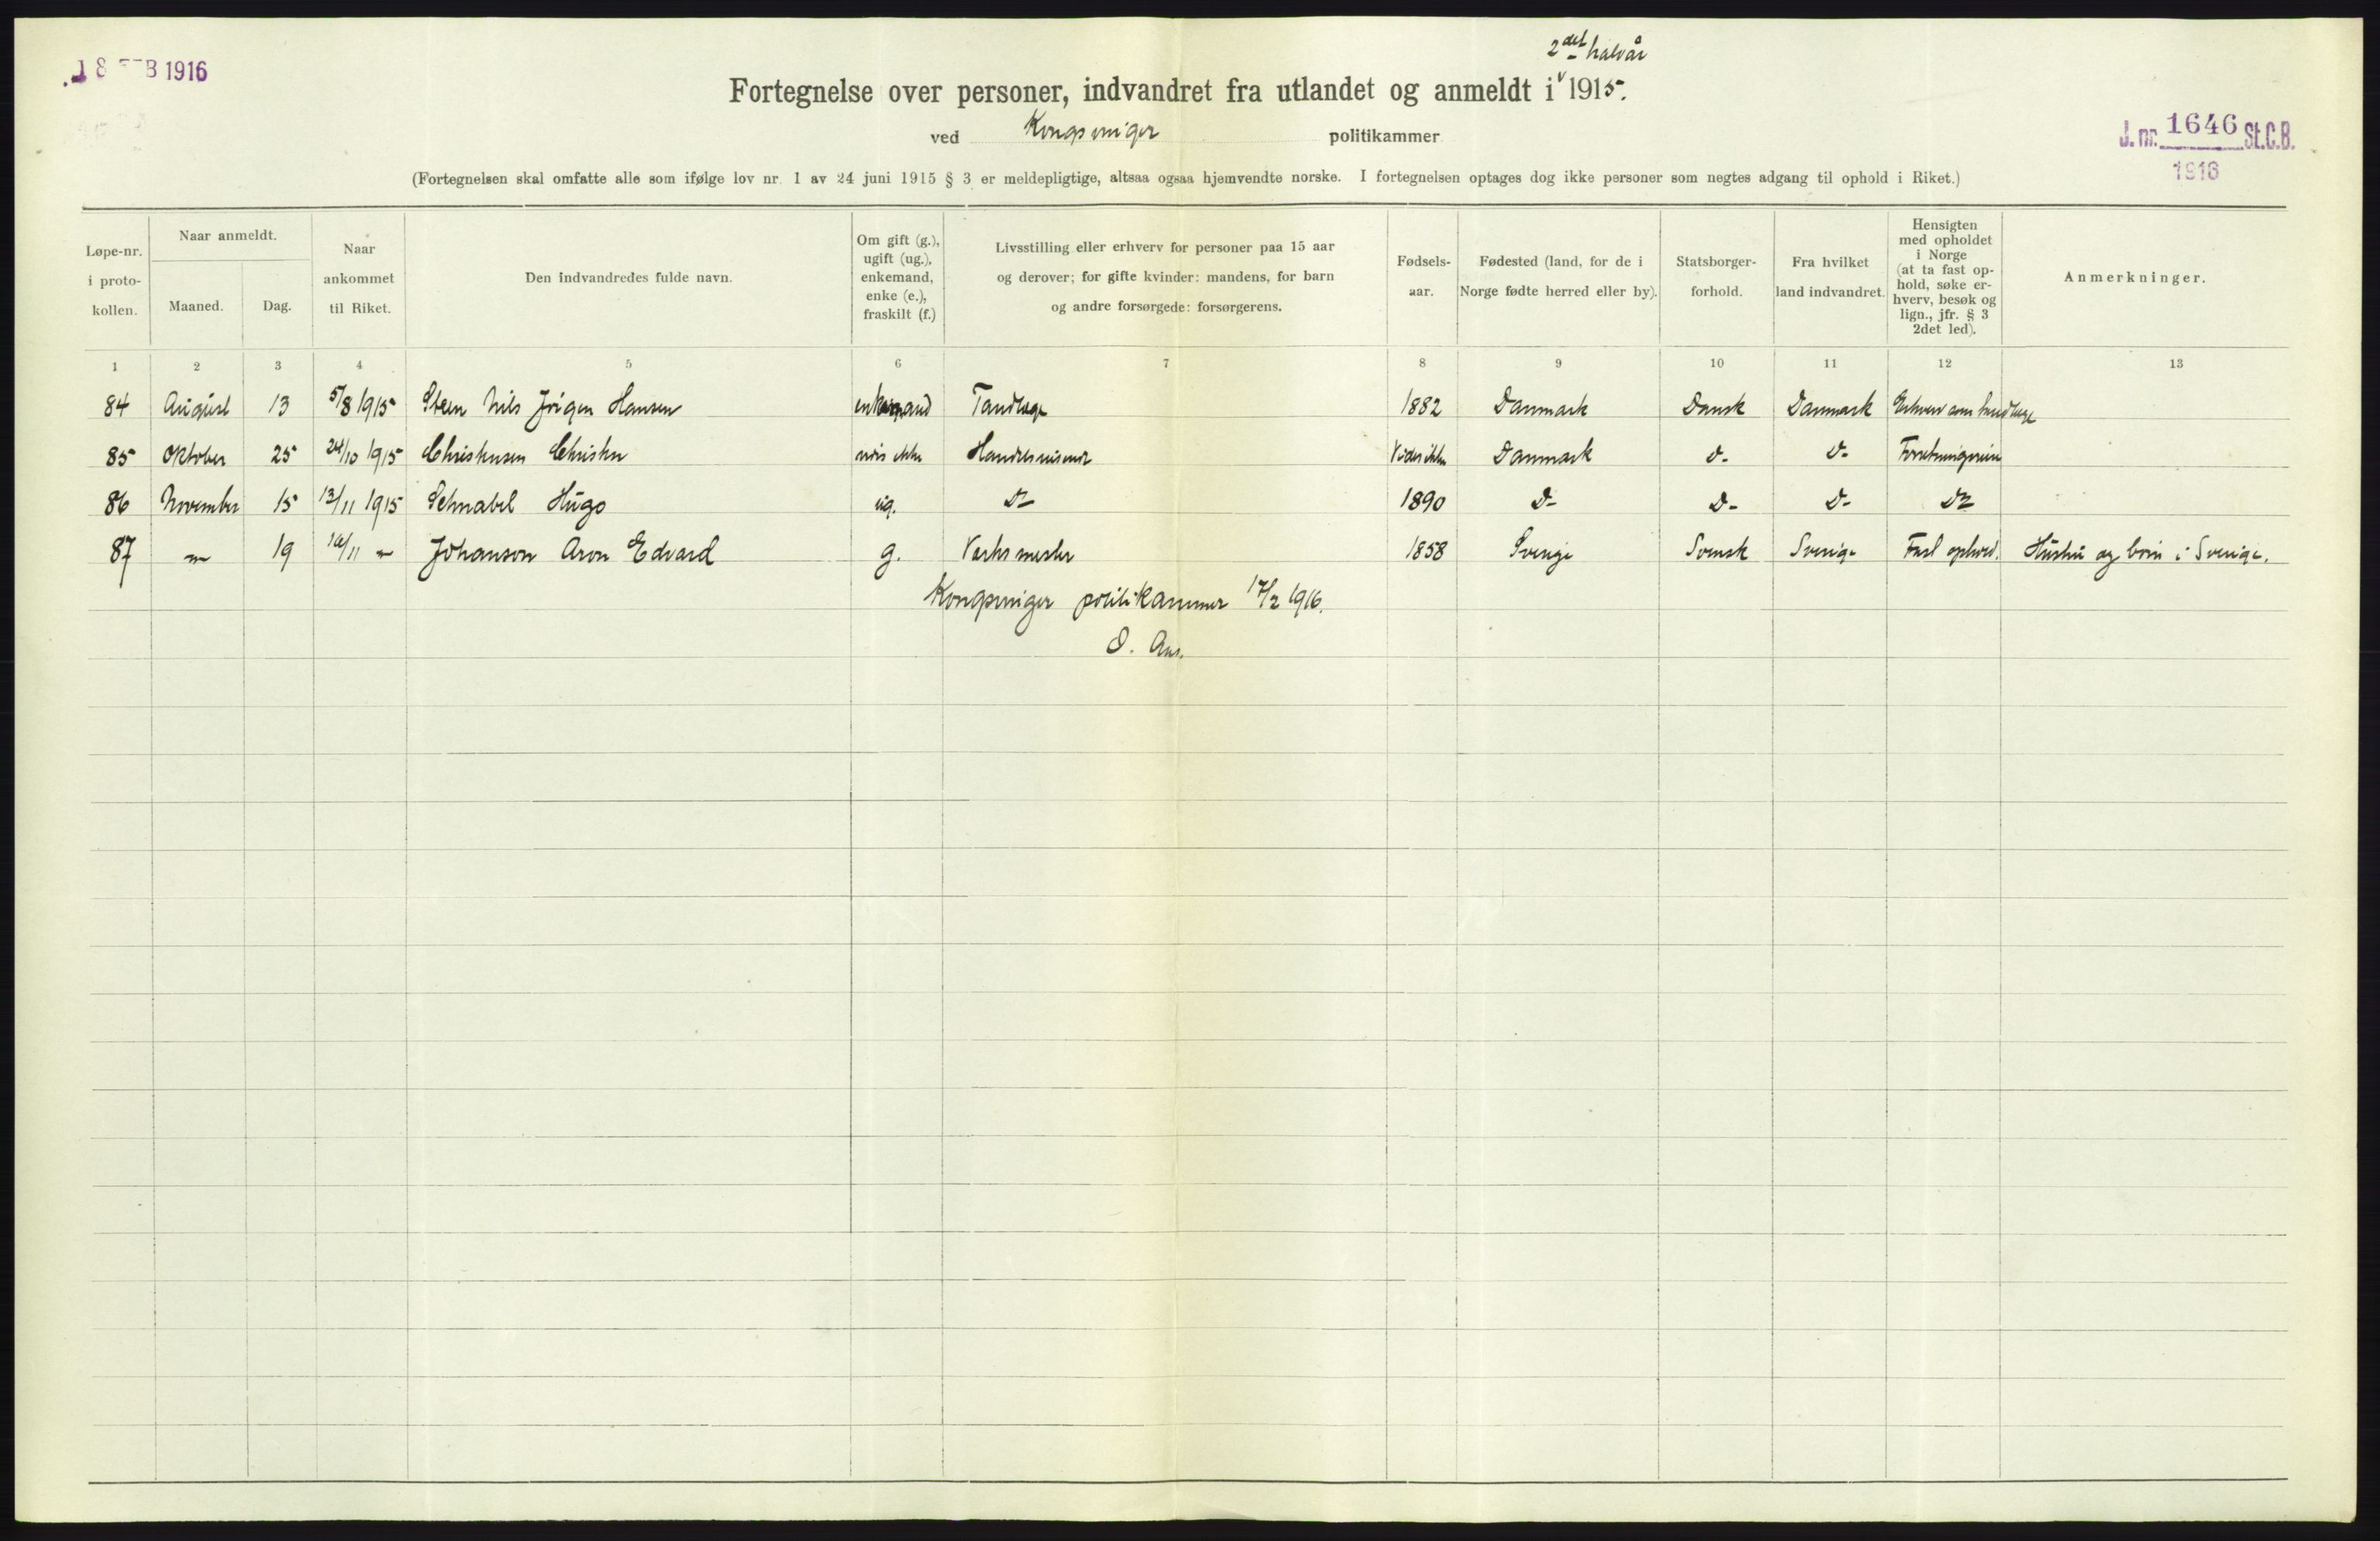 18 FEB 1916
2det halvår
Fortegnelse over personer, indvandret fra utlandet og anmeldt i 1915.
ved Kongsvinger politikammer
J. nr. 1646 St.C.B.
1916
(Fortegnelsen skal omfatte alle som ifølge lov nr. 1 av 24 juni 1915 § 3 er meldepligtige, altsaa ogsaa hjemvendte norske. I fortegnelsen optages dog ikke personer som negtes adgang til ophold i Riket.)
Løpe-nr. i proto-kollen.
Naar anmeldt.
Maaned.
Dag.
Naar ankommet til Riket.
Den indvandredes fulde navn.
Om gift (g.), ugift (ug.), enkemand, enke (e.), fraskilt (f.)
Livsstilling eller erhverv for personer paa 15 aar og derover; for gifte kvinder: mandens, for barn og andre forsørgede: forsørgerens.
Fødsels-aar.
Fødested (land, for de i Norge fødte herred eller by).
Statsborger-forhold.
Fra hvilket land indvandret.
Hensigten med opholdet i Norge (at ta fast op-hold, søke er-hverv, besøk og lign., jfr. § 3 2det led).
Anmerkninger.
1 2 3 4 5 6 7 8 9 10 11 12 13
84 August 13 5/8 1915 Steen Nils Jørgen Hansen enkemand Tandlæge 1882 Danmark Dansk Danmark Erhverv som tandlæge
85 Oktober 25 24/10 1915 Christensen Christen vides ikke Handelsreisende Vides ikke Danmark D- D- Forretningsreise
86 November 15 13/11 1915 Schnabel Hugo ug. Do 1890 D- D- D- Do
87 — 19 /11 — Johanson Aron Edvard g. Verksmester 1858 Sverige Svensk Sverige Fast ophold. Hustru og børn i Sverige.
Kongsvinger politikammer 17/2 1916.